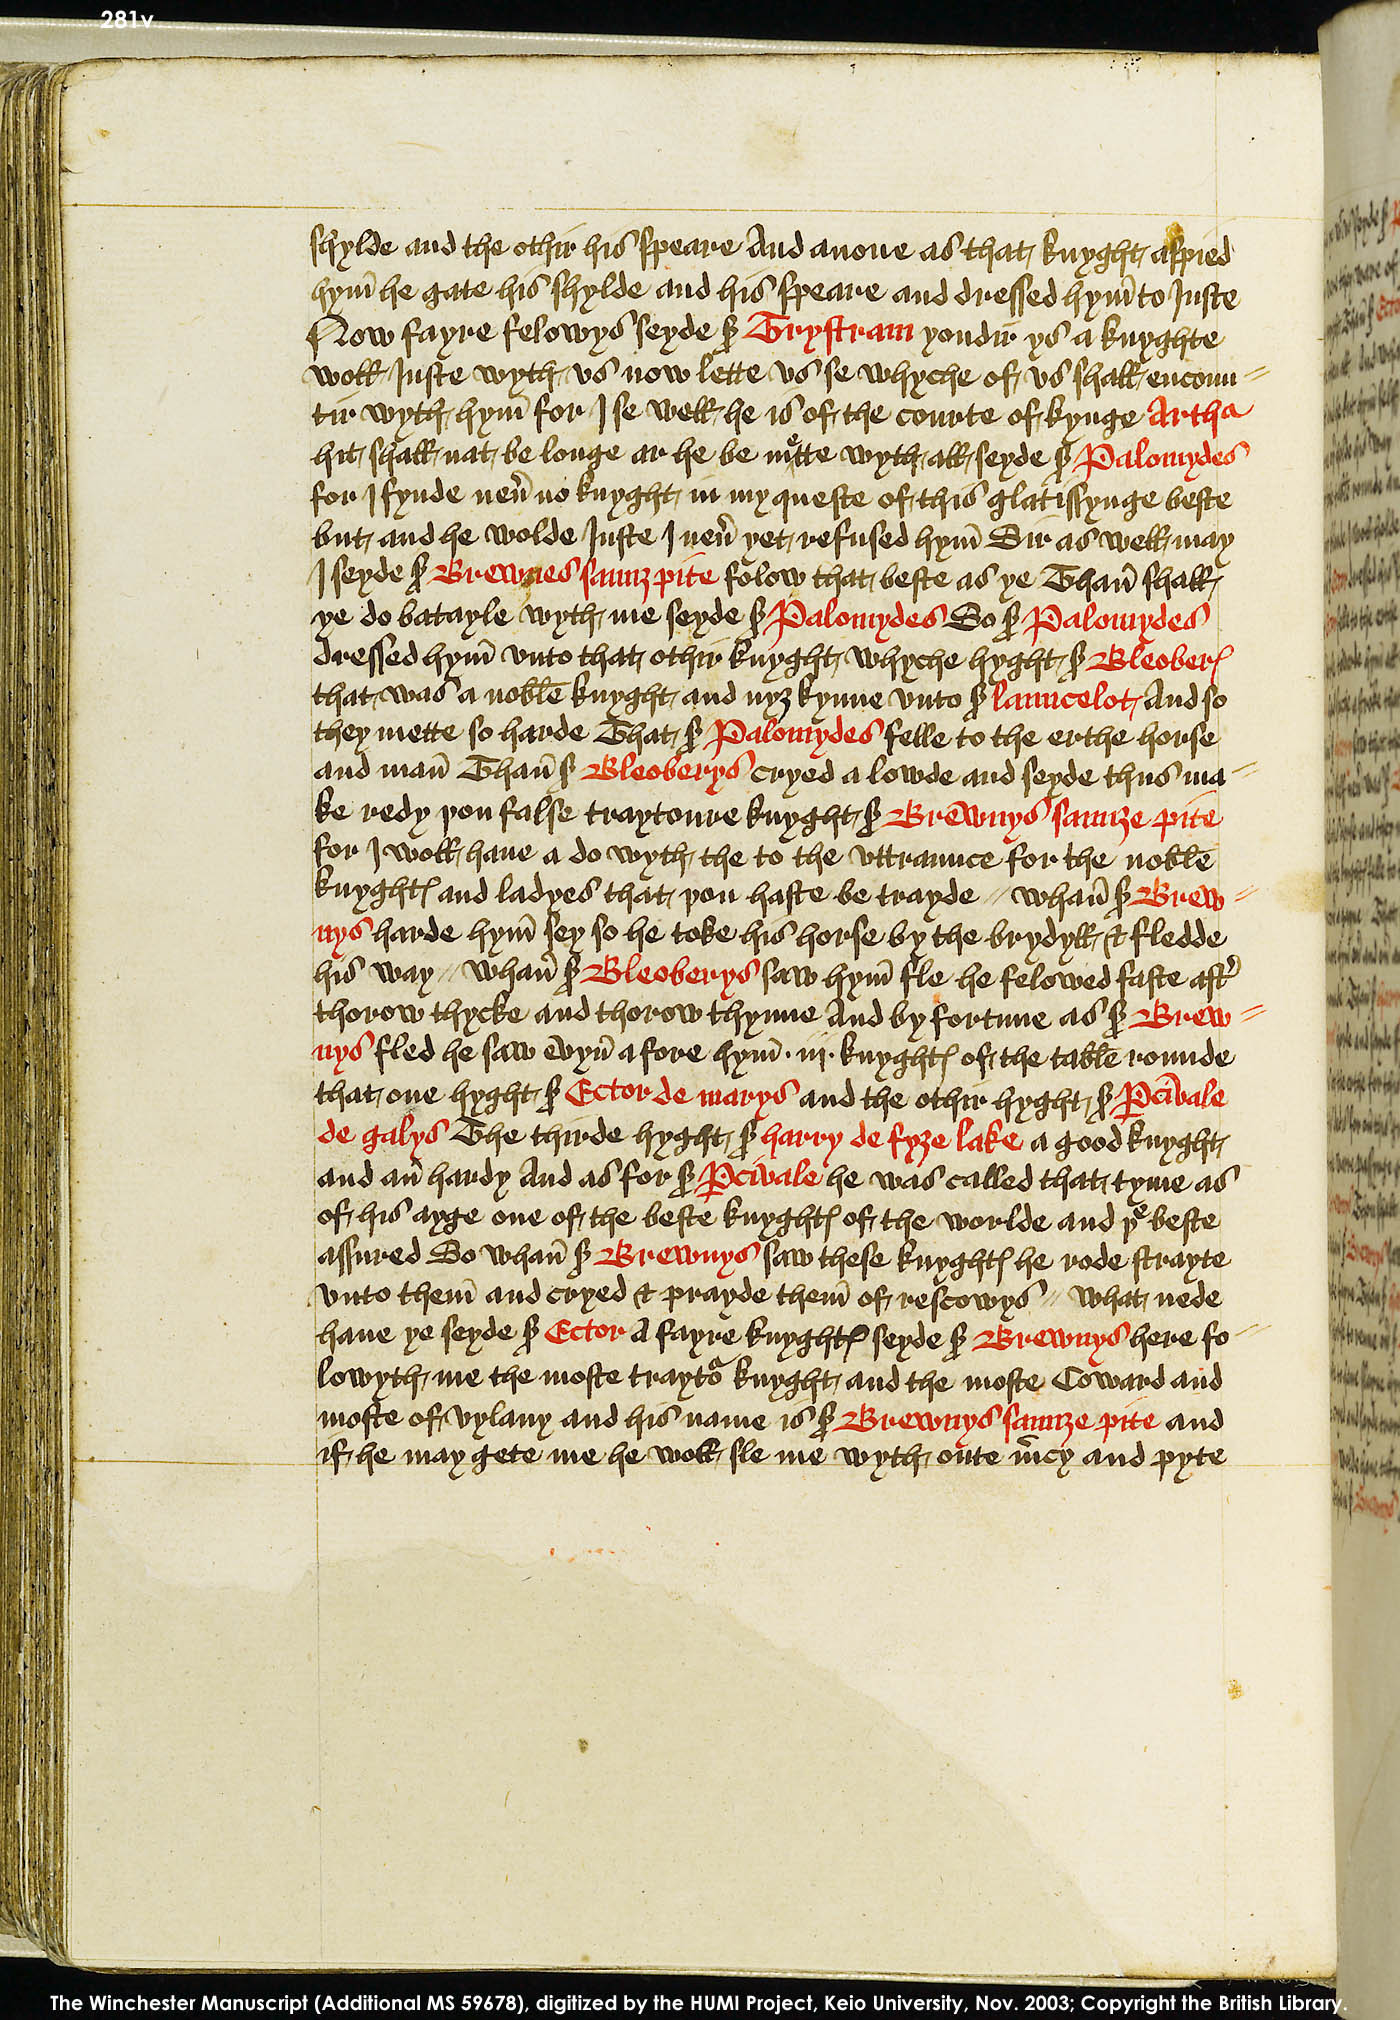 281v
shylde and the othir his speare And anone as that knyght aspied
hym̄ he gate his shylde and his speare and dressed hym̄ to Juste
Now fayre felowys seyde sͬ Trystram yondir ys a knyghte
woll Juste wyth vs now lette vs se whyche of vs shall encoun=
tir wyth hym̄ for I se well he is of the courte of kynge Arthᵃ
hit shall nat be longe ar he be mette wyth all seyde sͬ Palomydes
for I fynde neuͬ no knyght in my queste of this glatissynge beste
but and he wolde Juste I neuͬ yet refused hym̄ Sir as well may
I seyde sͬ Brewnes saunz pite folow that beste as ye Than̄ shall
ye do batayle wyth me seyde sͬ Palomydes So sͬ Palomydes
dressed hym̄ vnto that othir knyght whyche hyght sͬ Bleoberꝭ
that was a noble knyght and nyȝ kynne vnto sͬ launcelot And so
they mette so harde That sͬ Palomydes felle to the erthe horse
and man̄ Than̄ sͬ Bleoberys cryed a lowde and seyde thus ma=
ke redy þou false traytoure knyght sͬ Brewnys saunze pite
for I woll haue a do wyth the to the vttraunce for the noble
knyghtꝭ and ladyes that þou haste be trayde // whan̄ sͬ Brew=
nys harde hym̄ sey so he toke his horse by the brydyll & fledde
his way // whan̄ sͬ Bleoberys saw hym̄ fle he felowed faste aftͬ
thorow thycke and thorow thynne And by fortune as sͬ Brew=
nys fled he saw evyn̄ a fore hym̄ · iij · knyghtꝭ of the table rounde
that one hyght sͬ Ector de marys and the othir hyght sͬ Pͨivale
de galys The thirde hyght sͬ harry de fyze lake a good knyght
and an̄ hardy And as for sͬ Pͨivale he was called that tyme as
of his ayge one of the beste knyghtꝭ of the worlde and þͤ beste
assured So whan̄ sͬ Brewnys saw these knyghtꝭ he rode strayte
vnto them̄ and cryed & prayde them̄ of rescowys // What nede
haue ye seyde sͬ Ector A fayre knyghtꝭ seyde sͬ Brewnys here fo=
lowyth me the moste traytoͬ knyght and the moste Coward and
moste of vylany and his name is sͬ Brewnys saunze pite and
if he may gete me he woll sle me wyth oute m̉cy and pyte
The Winchester Manuscript (Additional MS 59678), digitized by the HUMI Project, Keio University, Nov. 2003; Copyright the British Library.